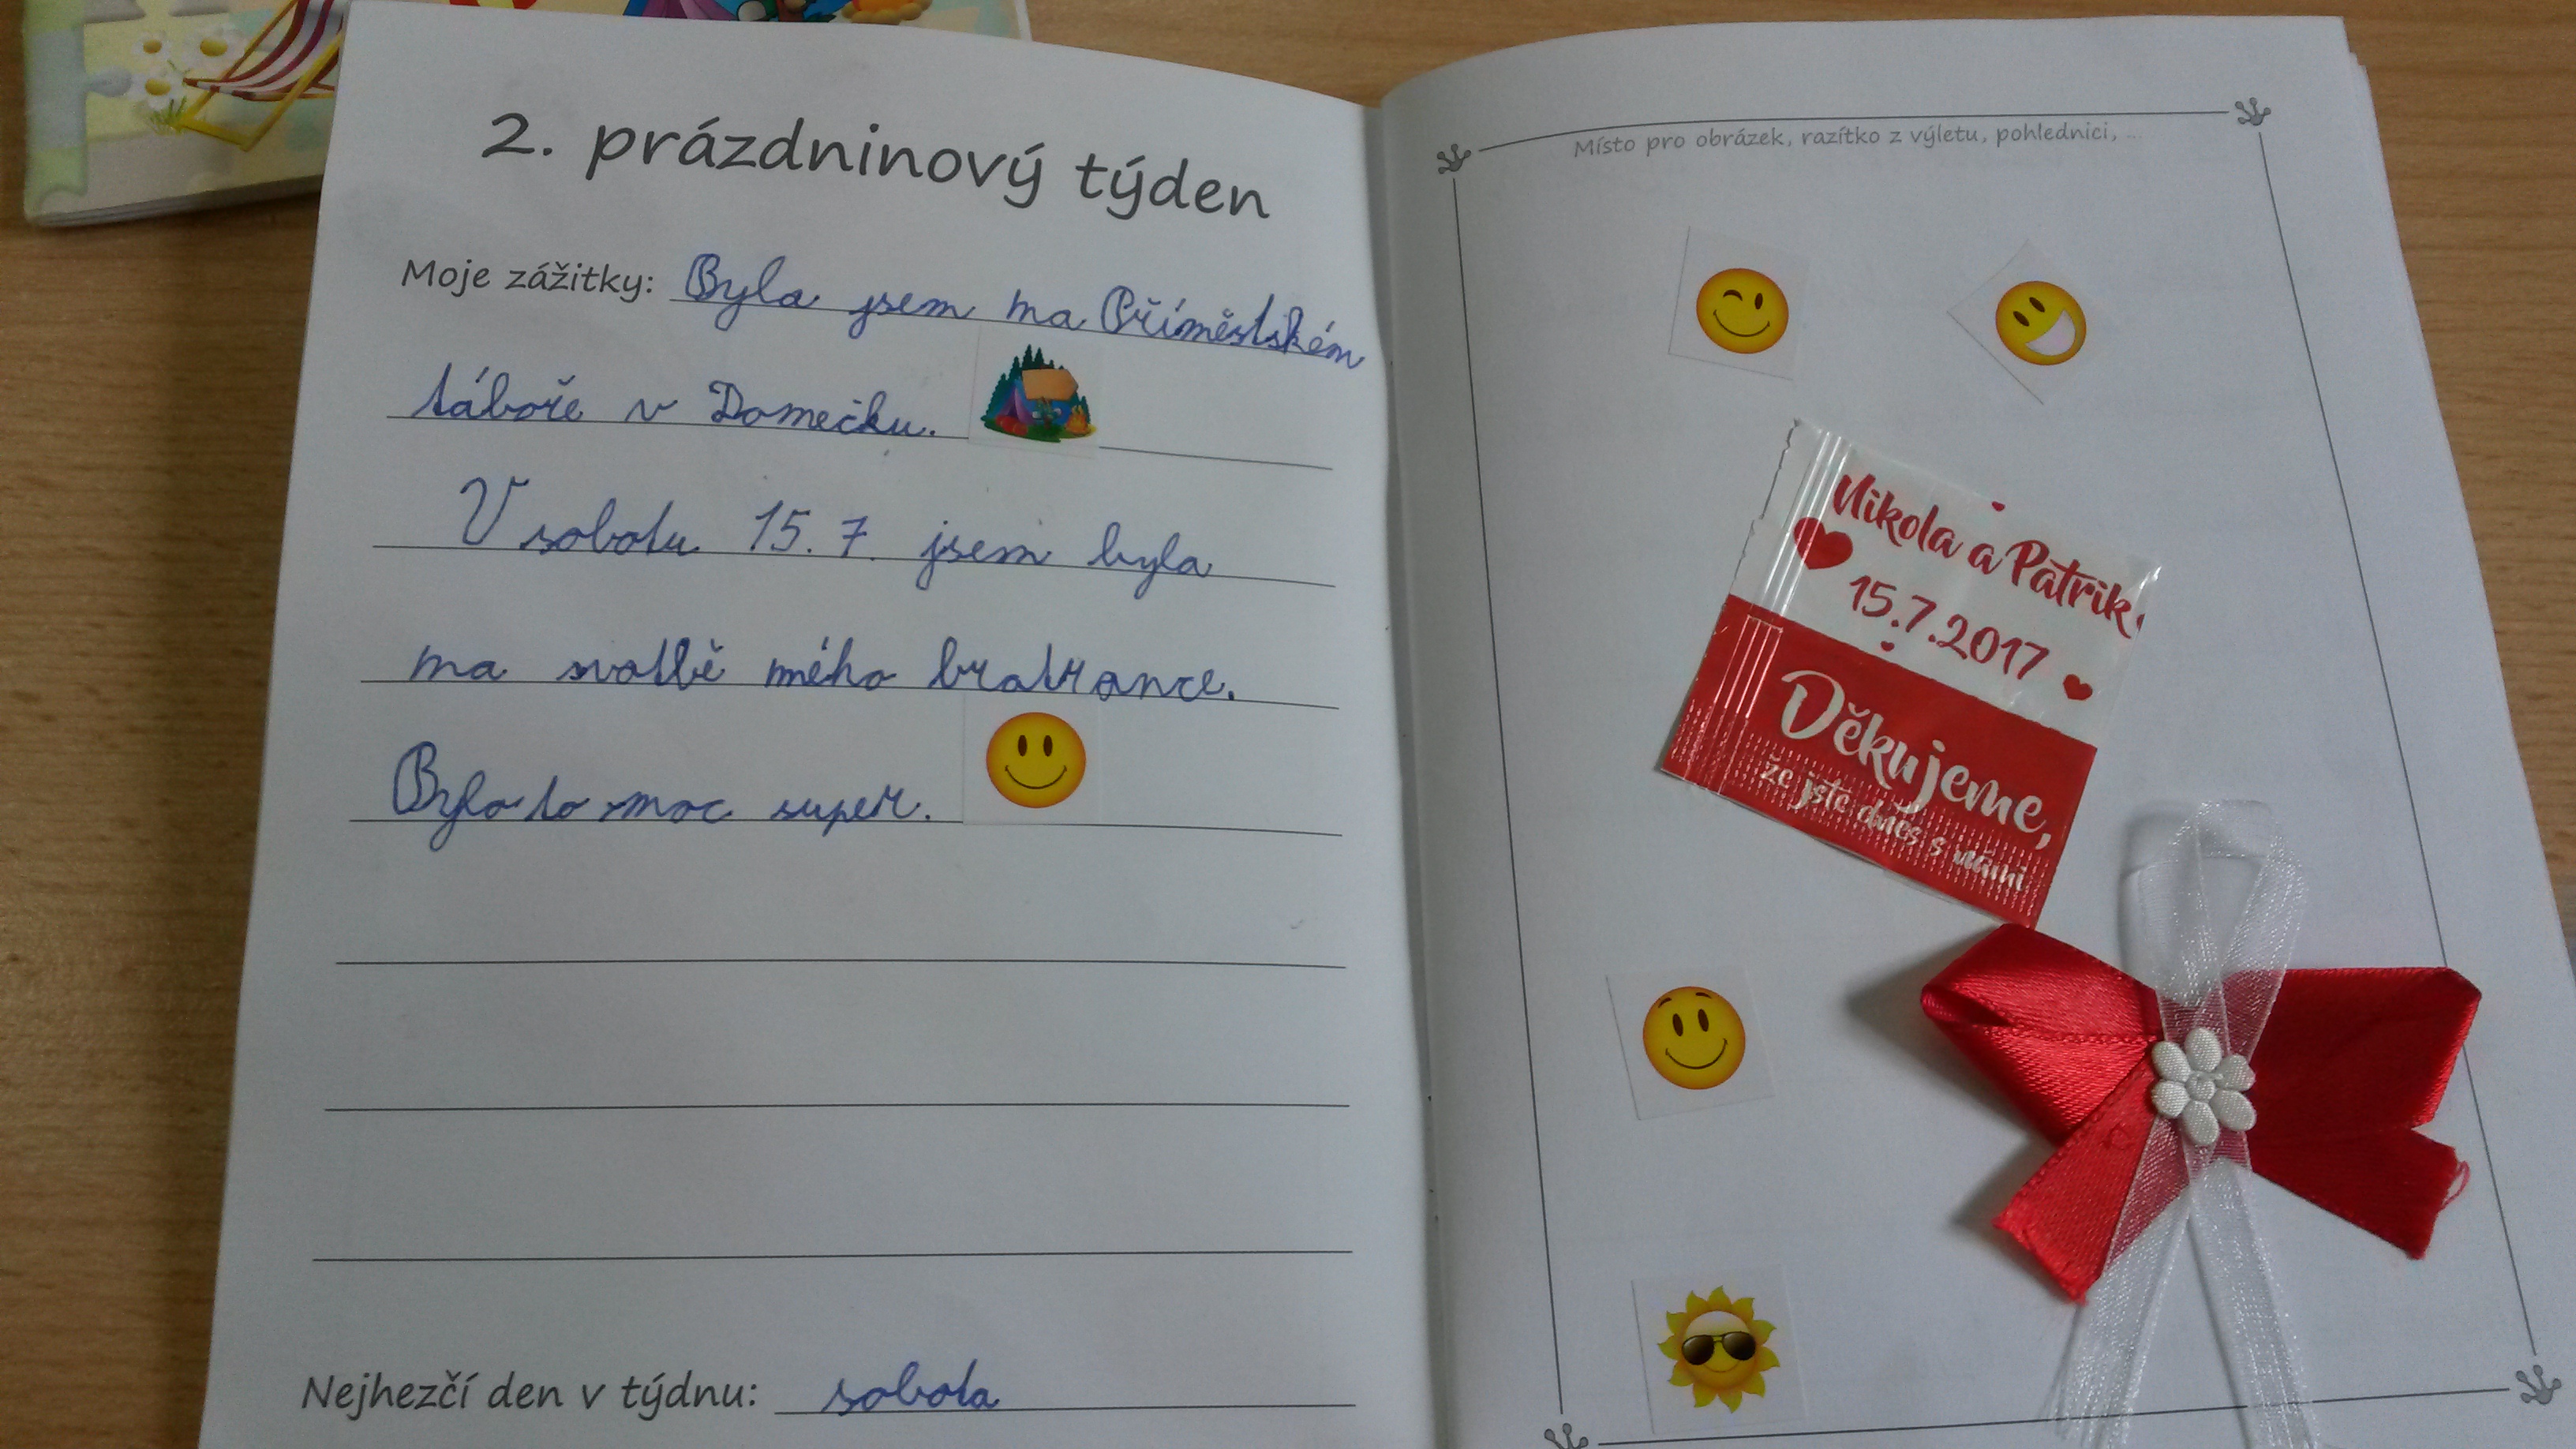 2. prázdninový týden
Moje zážitky: Byla jsem na Příměstském
táboře v Domečku.
V sobotu 15. 7. jsem byla
na svatbě mého bratrance.
Bylo to moc super.
Nejhezčí den v týdnu: sobota
Místo pro obrázek, razítko z výletu, pohlednici, ...
Nikola a Patrik
15.7.2017
Děkujeme,
že jste dnes s námi